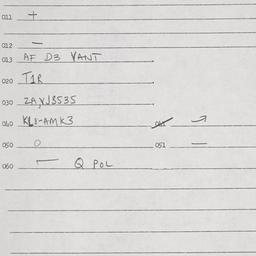 011 +
012 —
013 AF D3 VANT
020 T1R
030 ZAVJ3535
040 KL8-AMK3 041 →
050 O 051 —
060 — Q POL